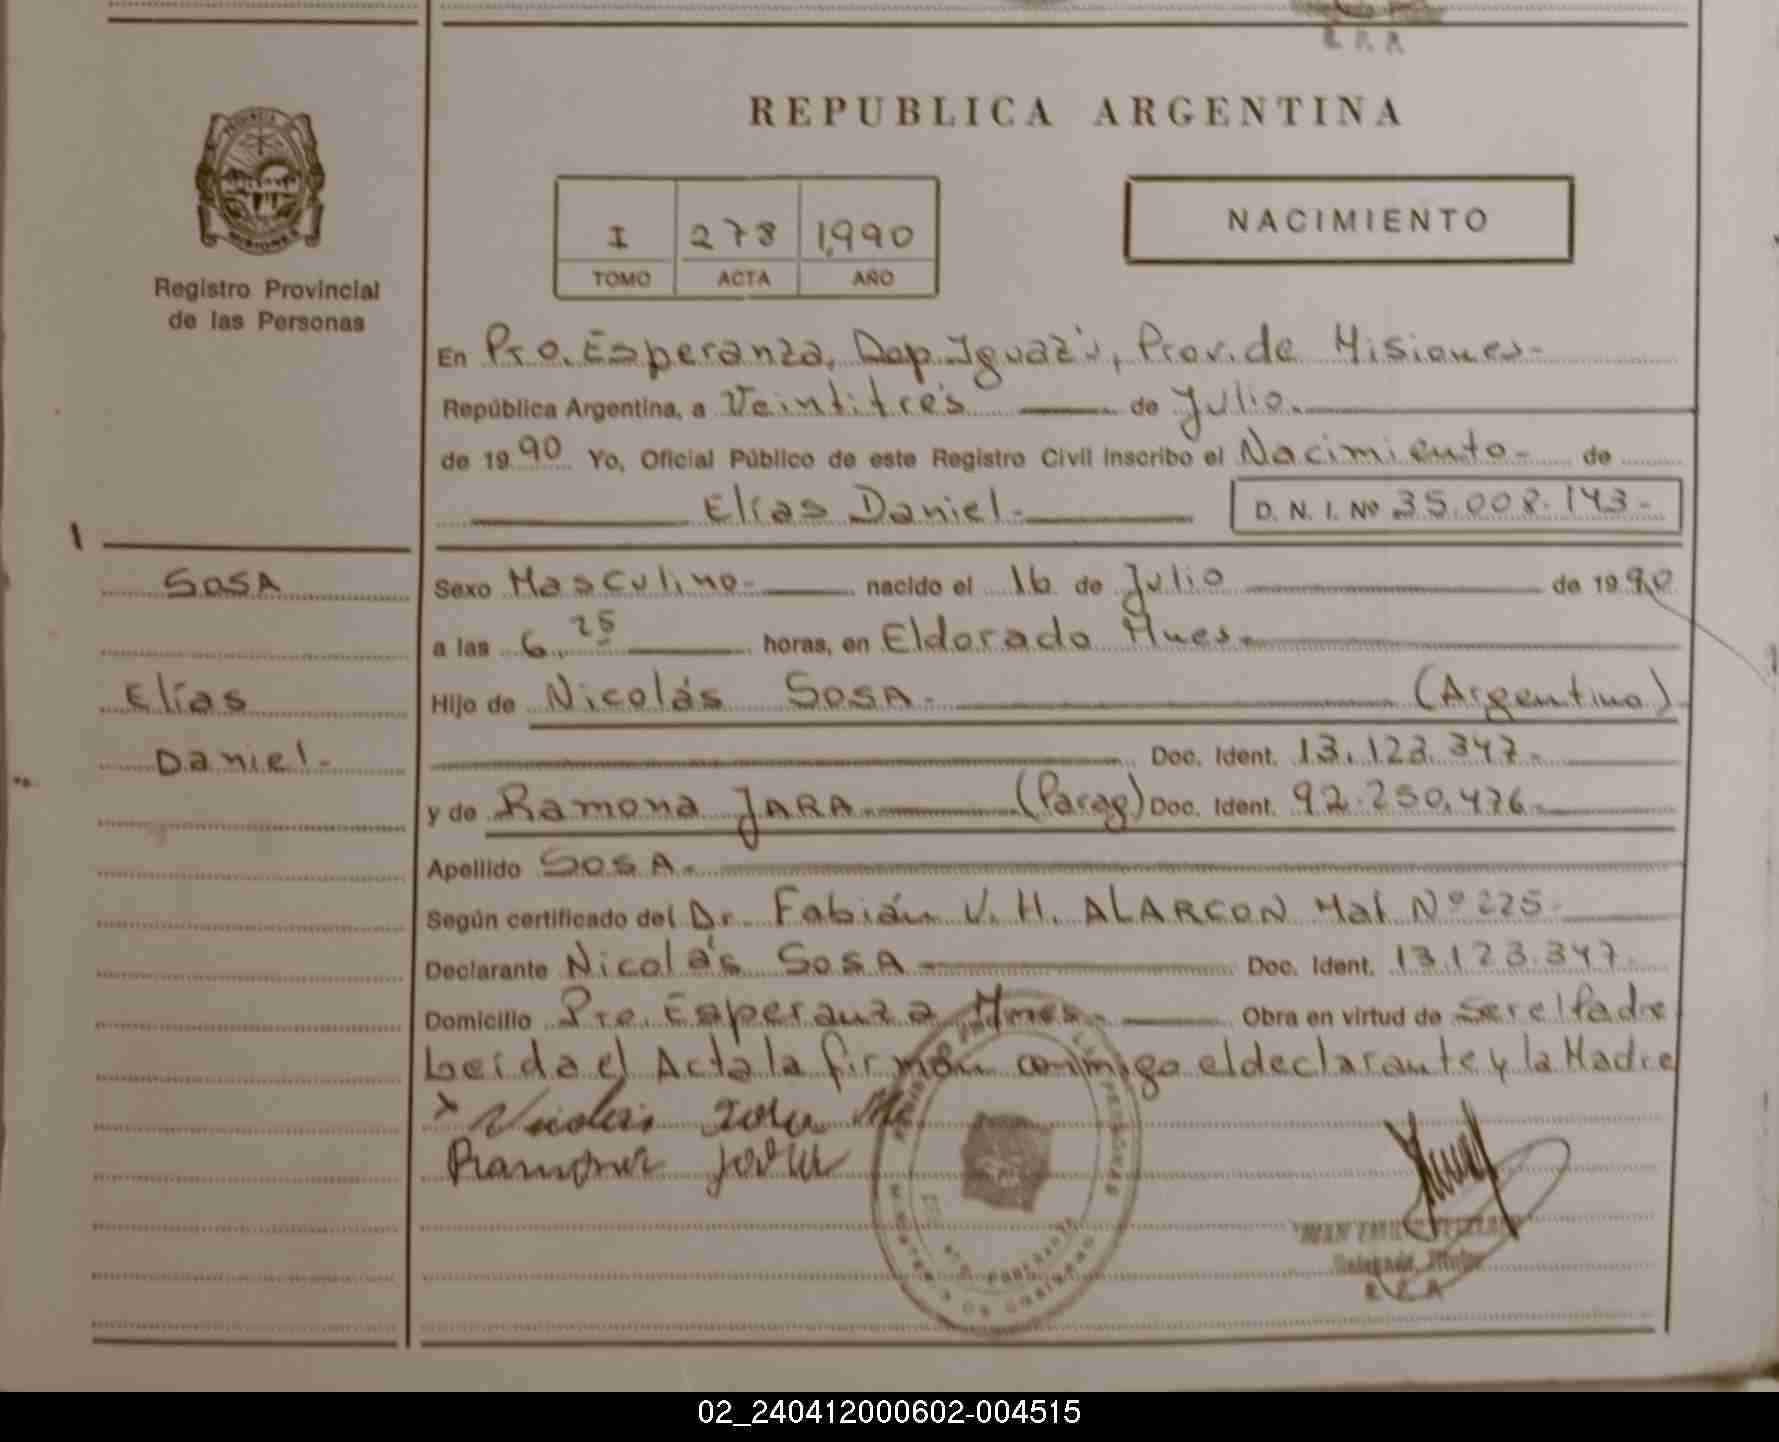 R. P. P.
REPUBLICA ARGENTINA
PROVINCIA
MISIONES
Registro Provincial
de las Personas
I 278 1,990
TOMO ACTA AÑO
NACIMIENTO
En Pto. Esperanza, Dep. Iguazú, Prov. de Misiones-
República Argentina, a Veintitrés de Julio.
de 1990 Yo, Oficial Público de este Registro Civil inscribo el Nacimiento- de
Elías Daniel- D. N. I. Nº 35.008.143-
SOSA
Elías
Daniel-
Sexo Masculino- nacido el 16 de Julio de 1990
a las 6.25 horas, en Eldorado Mnes-
Hijo de Nicolás SOSA- (Argentino)
Doc. Ident. 13.123.347-
y de Ramona JARA (Parag) Doc. Ident. 92.250.476-
Apellido SOSA-
Según certificado del Dr. Fabián V. H. ALARCON Mat Nº 225-
Declarante Nicolás SOSA Doc. Ident. 13.123.347-
Domicilio Pto. Esperanza Mnes- Obra en virtud de ser el Padre
Leída el Acta la firman conmigo el declarante y la Madre
x Nicolás Sosa
Ramona Jara
Delegado Titular
R. P. P.
02_240412000602-004515